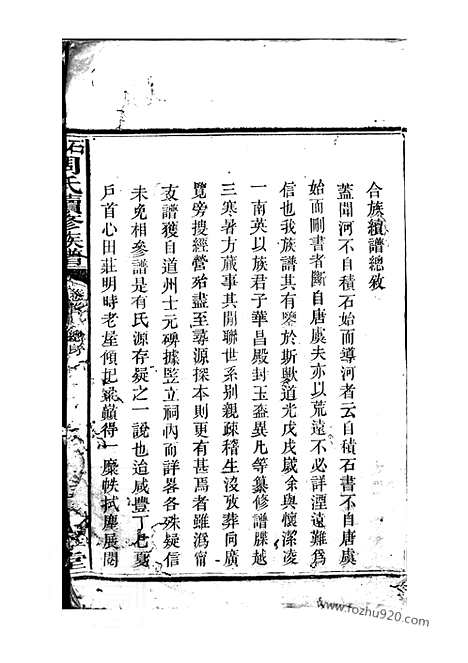 合族續譜總敘
蓋聞河不自積石始而導河者云自積石書不自唐虞
始而刪書者斷自唐虞夫亦以荒遠不必詳湮遠難為
信也我族譜其有鑒於斯歟道光戊戌歲余與懷潔凌
一南英以族君子華昌殿封玉盔異凡等纂修譜牒越
三寒暑方蕆事其開聯世系別親疎稽生沒攷葬同廣
覽旁搜經營殆盡至尋源探本則更有甚焉者雖溈甯
支譜獲自道州士元碑據豎立祠內而詳畧各殊疑信
未免相參譜是有氏源存疑之一說也迨咸豐丁巳夏
戶首心田莊明時老屋傾圮梁巔得一麋帙拭塵展閱
石周氏續修族譜
堂
www.fozhu920.com